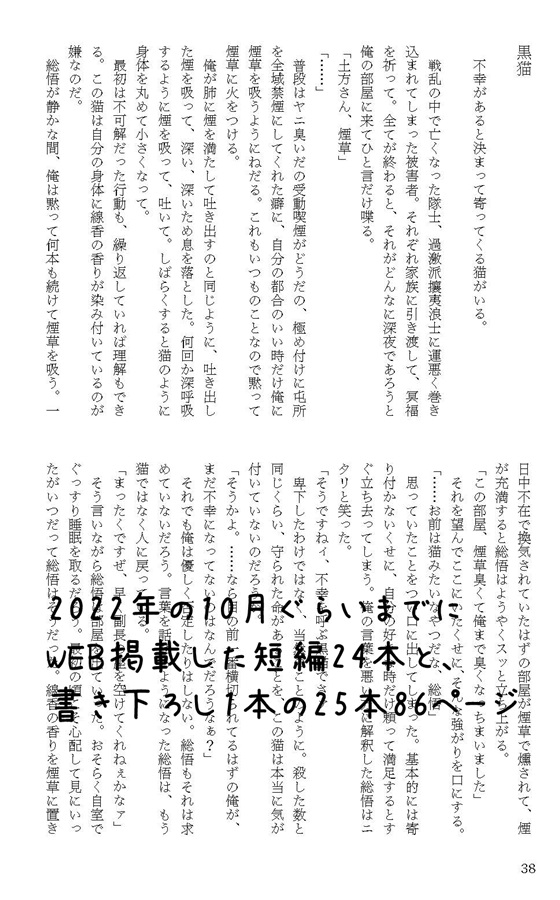 黒猫
不幸があると決まって寄ってくる猫がいる。
戦乱の中で亡くなった隊士、過激派攘夷浪士に運悪く巻き
込まれてしまった被害者。それぞれ家族に引き渡して、冥福
を祈って。全てが終わると、それがどんなに深夜であろうと
俺の部屋に来てひと言だけ喋る。
「土方さん、煙草」
「……」
普段はヤニ臭いだの受動喫煙がどうだの、極め付けに屯所
を全域禁煙にしてくれた癖に、自分の都合のいい時だけ俺に
煙草を吸うようにねだる。これもいつものことなので黙って
煙草に火をつける。
俺が肺に煙を満たして吐き出すのと同じように、吐き出し
た煙を吸って、深い、深いため息を落とした。何回か深呼吸
するように煙を吸って、吐いて。しばらくすると猫のように
身体を丸めて小さくなって。
最初は不可解だった行動も、繰り返していれば理解もでき
る。この猫は自分の身体に線香の香りが染み付いているのが
嫌なのだ。
総悟が静かな間、俺は黙って何本も続けて煙草を吸う。一
日中不在で換気されていたはずの部屋が煙草で燻されて、煙
が充満すると総悟はようやくスッと立ち上がる。
「この部屋、煙草臭くて俺まで臭くなっちまいました」
それを望んでここにいたくせに、そんな強がりを口にする。
「……お前は猫みたいなやつだな、総悟」
思っていたことをつい口に出してしまった。基本的には寄
り付かないくせに、自分の好きな時だけ頼って満足するとす
ぐ立ち去ってしまう。俺の言葉を悪い方に解釈した総悟はニ
タリと笑った。
「そうですねィ、不幸を呼ぶ黒猫でさ」
卑下したわけではなく、当然のことのように。殺した数と
同じくらい、守られた命があることを、この猫は本当に気が
付いていないのだろうか。
「そうかよ。……なら目の前を横切られてるはずの俺が、
まだ不幸になってないのはなんでだろうなぁ?」
それでも俺は優しく否定したりはしない。総悟もそれは求
めていないだろう。言葉を話すようになった総悟は、もう
猫ではなく人に戻って
「まったくですぜ、早く副長の座を空けてくれねぇかなァ」
そう言いながら総悟は部屋を出ていった。おそらく自室で
ぐっすり睡眠を取るだろう。最初の頃こそ心配して見にいっ
たがいつだって総悟はそうだった。線香の香りを煙草に置き
2022年の10月ぐらいまでに
WEB掲載した短編24本と、
書き下ろし1本の25本86ページ
38